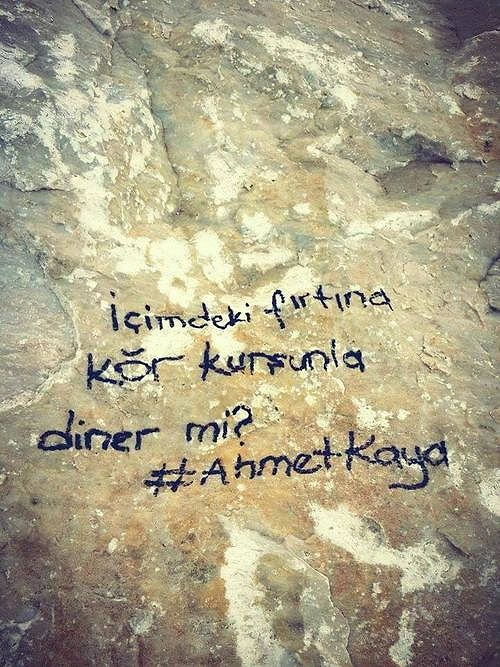 İçimdeki fırtına
kör kurşunla
diner mi?
#AhmetKaya